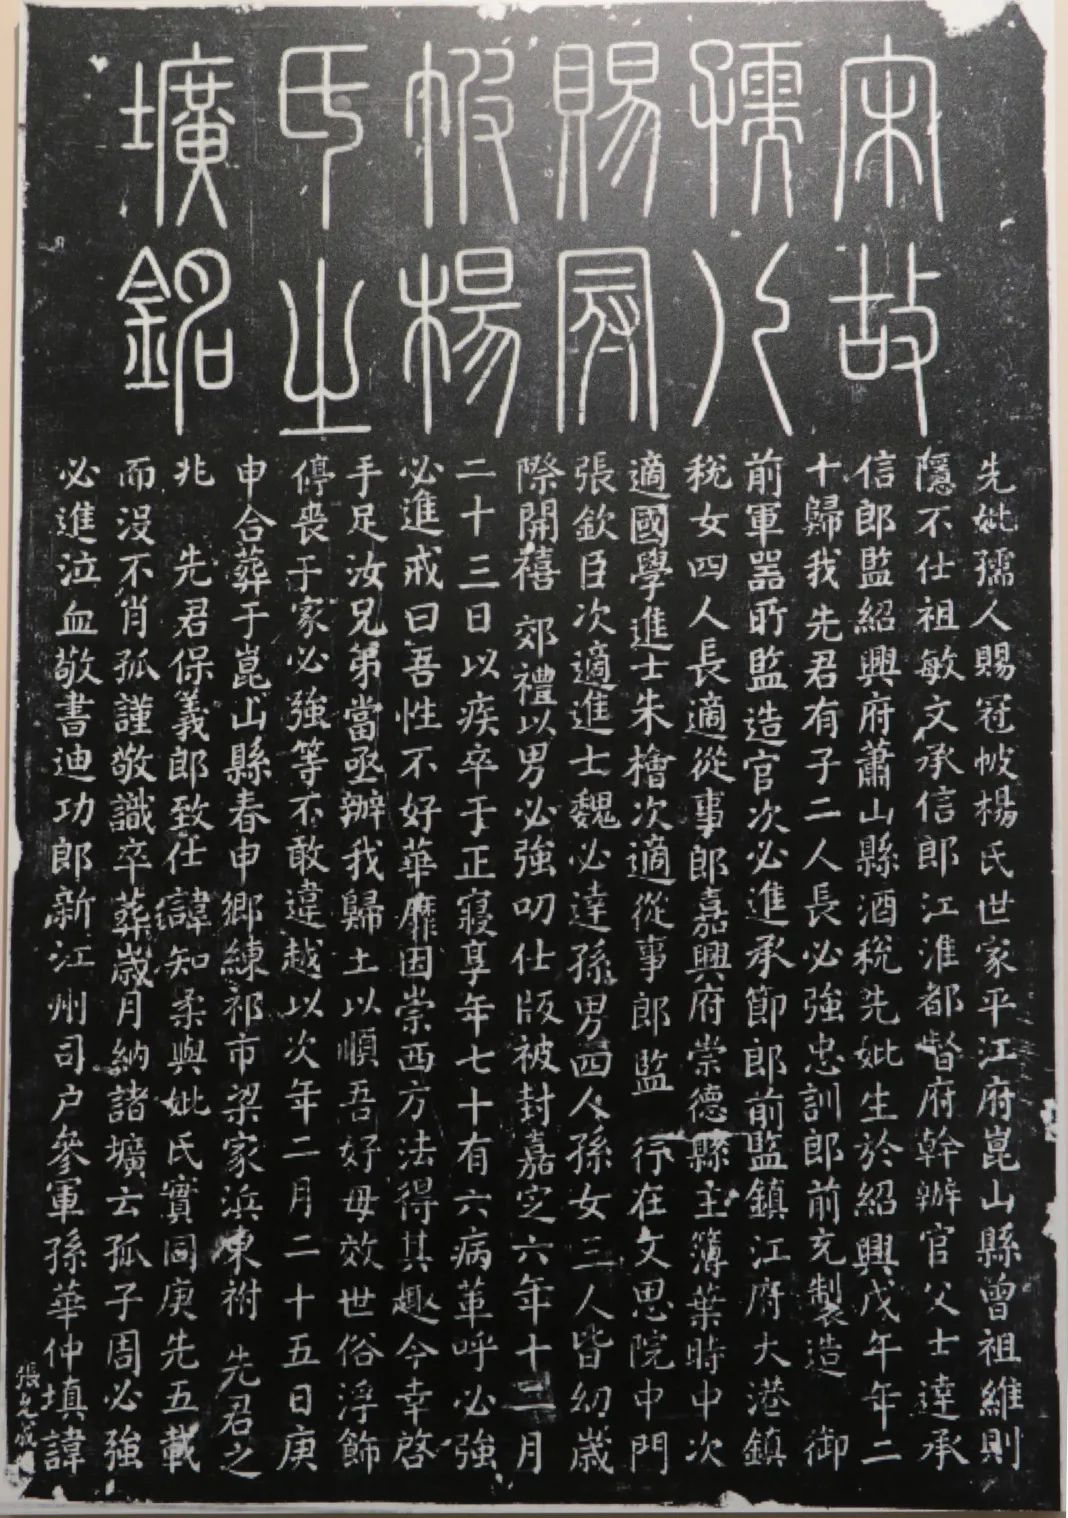 宋故
孺人
賜冠
帔楊
氏之
壙銘
先妣孺人賜冠帔楊氏世家平江府崑山縣曾祖維則
隱不仕祖敏文承信郎江淮都督府幹辦官父士達承
信郎監紹興府蕭山縣酒稅先妣生於紹興戊午年二
十歸我先君有子二人長必強忠訓郎前充製造 御
前軍器所監造官次必進承節郎前監鎮江府大港鎮
稅女四人長適從事郎嘉興府崇德縣主簿葉時中次
適國學進士朱檜次適從事郎監 行在文思院中門
張欽臣次適進士魏必達孫男四人孫女三人皆幼歲
際開禧 郊禮以男必強叨仕版被封嘉定六年十二月
二十三日以疾卒于正寢享年七十有六病革呼必強
必進戒曰吾性不好華靡因崇西方法得其趣今幸啓
手足汝兄弟當亟辦我歸土以順吾好毋效世俗浮飾
停喪于家必強等不敢違越以次年二月二十五日庚
申合葬于崑山縣春申鄉練祁市梁家浜東祔 先君之
兆 先君保義郎致仕諱知柔與妣氏實同庚先五載
而沒不肖孤謹敬識卒葬歲月納諸壙云孤子周必強
必進泣血敬書迪功郎新江州司戶參軍孫華仲填諱
張允成